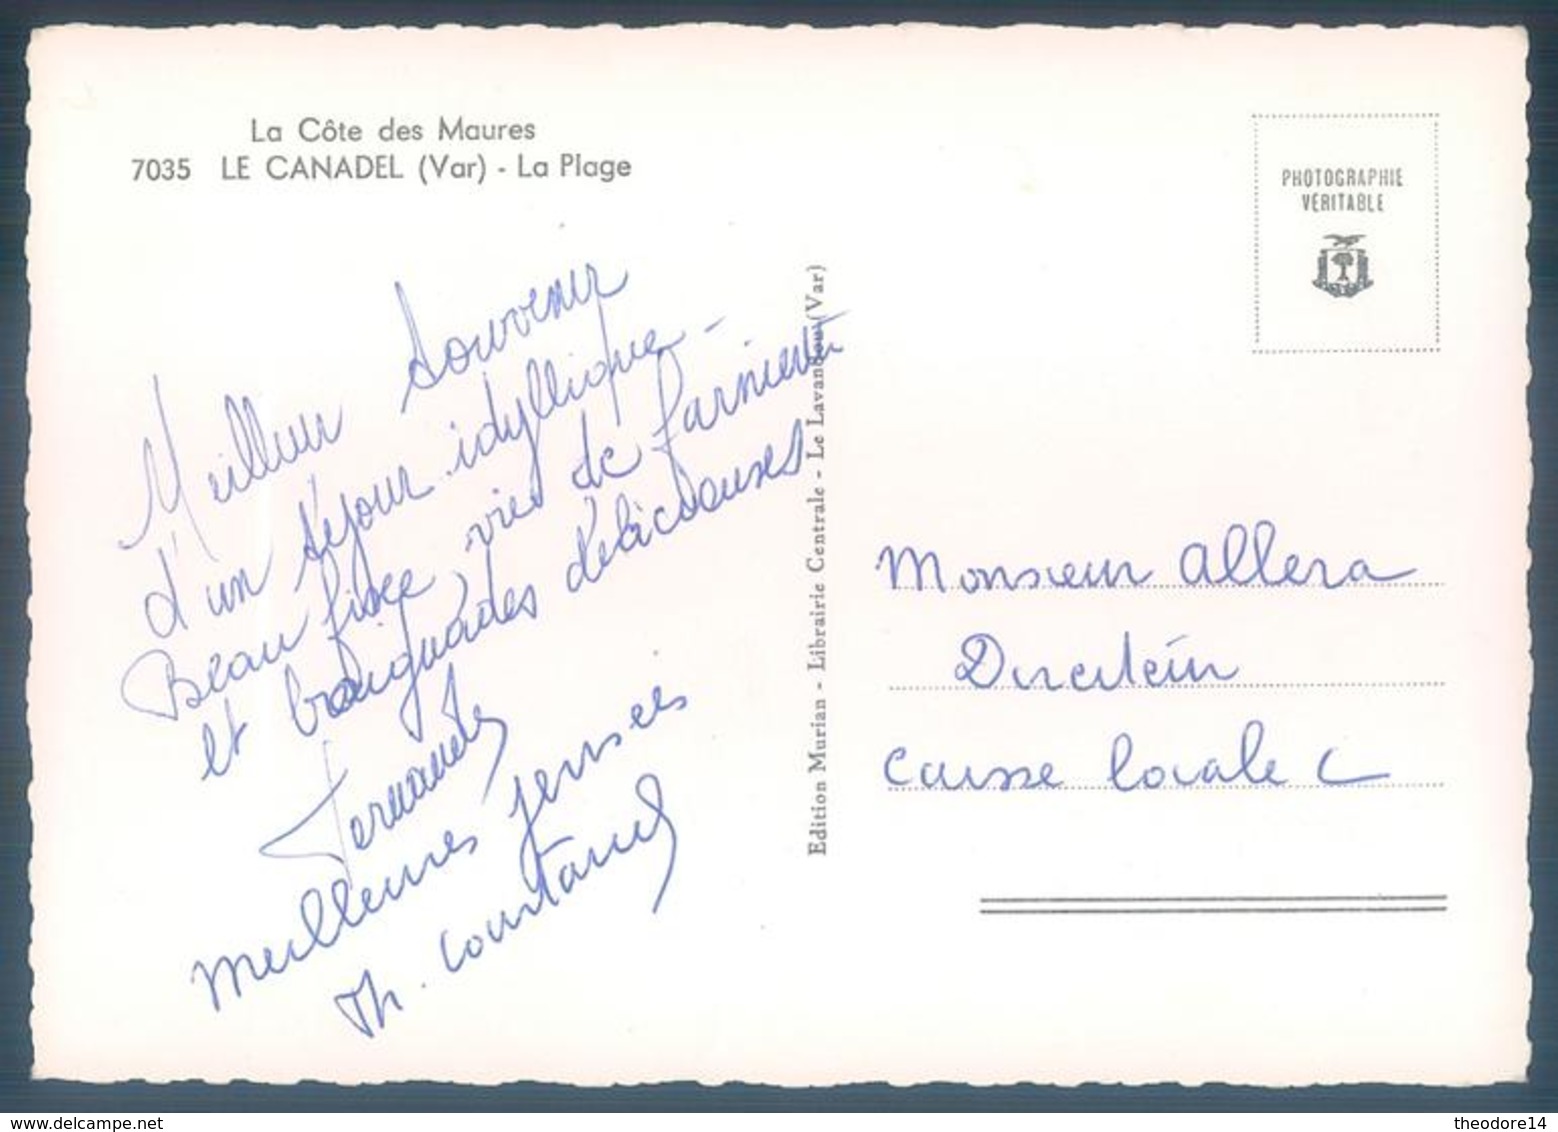 La Côte des Maures
7035 LE CANADEL (Var) - La Plage
PHOTOGRAPHIE
VÉRITABLE
Meilleur souvenir
d'un séjour idyllique -
Beau fixe, vie de farniente
et baignades délicieuses
Fernande
meilleures pensées
Th.
Edition Murian - Librairie Centrale - Le Lavandou (Var)
Monsieur Allera
Directeur
Caisse locale C
theodore14